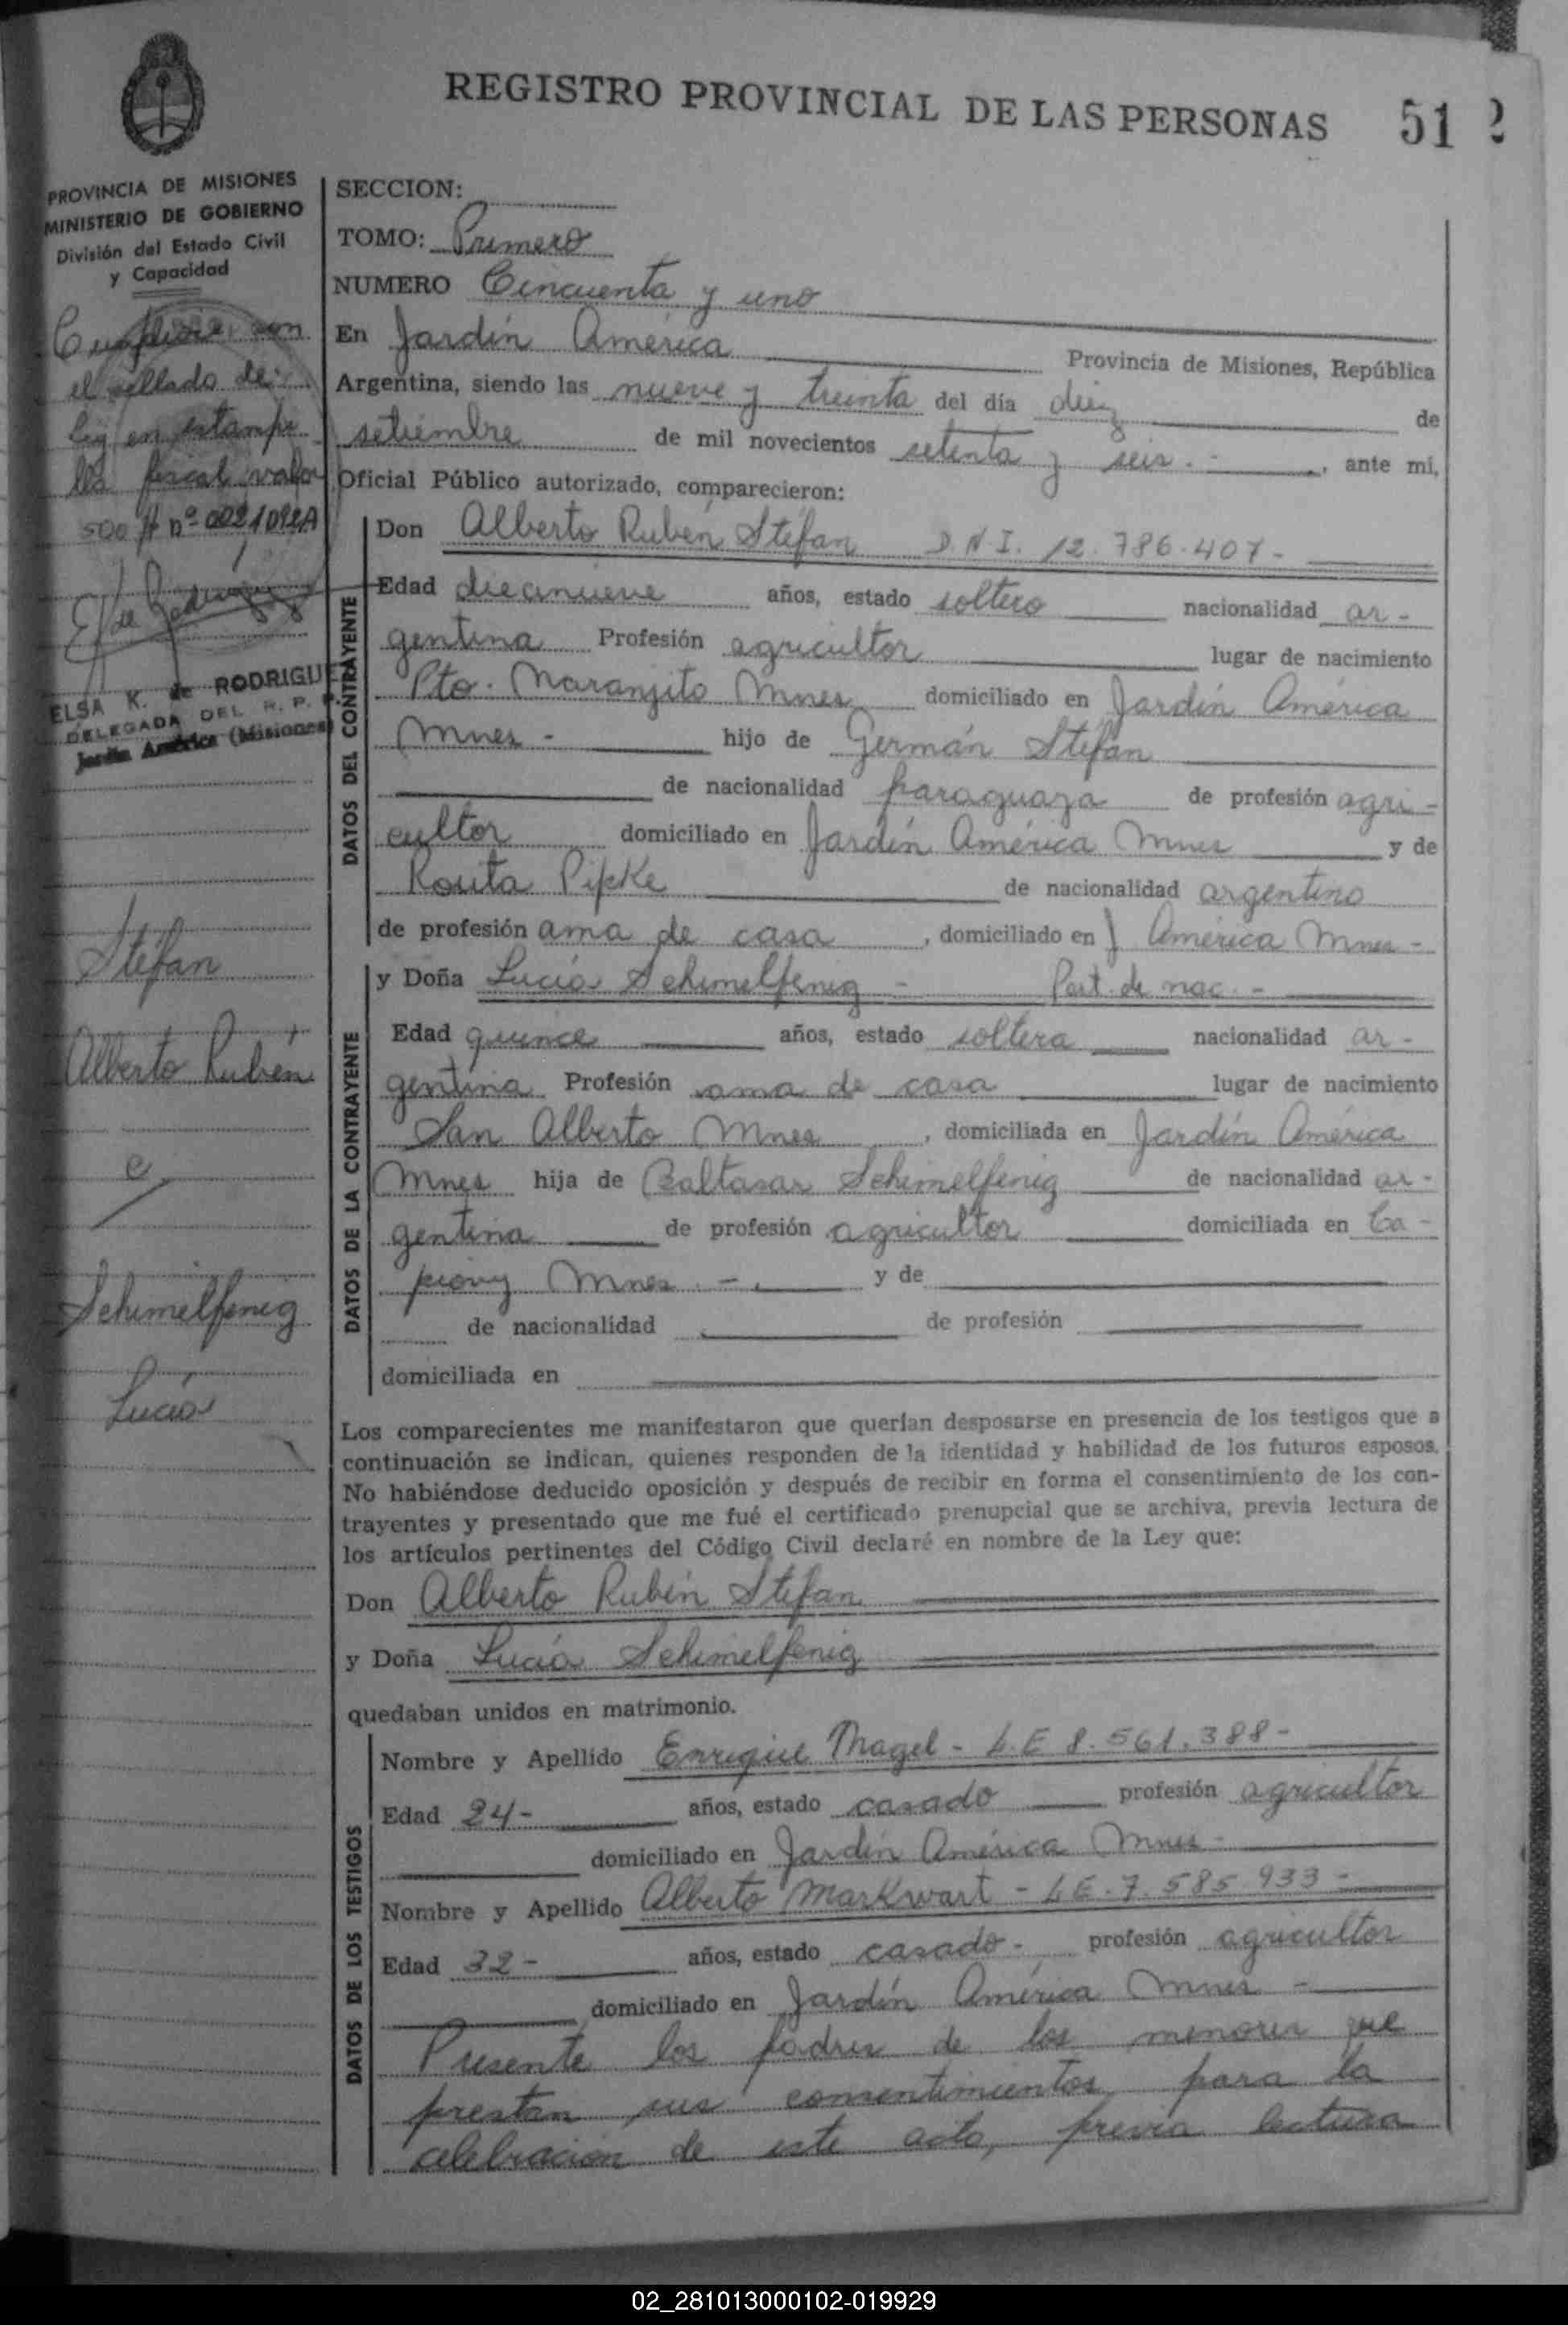 REGISTRO PROVINCIAL DE LAS PERSONAS 51
PROVINCIA DE MISIONES
MINISTERIO DE GOBIERNO
División del Estado Civil
y Capacidad
con
el sellado de
ley en estampi
lla fiscal valor
500 Nº 0021092A
ELSA K. de RODRIGUE
DELEGADA DEL R. P. P.
Jardín América (Misiones)
Stéfan
Alberto Rubén
e
Schimelfenig
Lucía
SECCION:
TOMO: Primero
NUMERO Cincuenta y uno
En Jardín América Provincia de Misiones, República
Argentina, siendo las nueve y treinta del día diez de
setiembre de mil novecientos setenta y seis.- , ante mí,
Oficial Público autorizado, comparecieron:
DATOS DEL CONTRAYENTE
Don Alberto Rubén Stéfan D.N.I. 12.786.407-
Edad diecinueve años, estado soltero nacionalidad ar-
gentina Profesión agricultor lugar de nacimiento
Pto. Naranjito Mnes domiciliado en Jardín América
Mnes - hijo de Germán Stéfan
de nacionalidad paraguaya de profesión agri-
cultor domiciliado en Jardín América Mnes y de
Rosita Pipke de nacionalidad argentino
de profesión ama de casa , domiciliado en J América Mnes -
DATOS DE LA CONTRAYENTE
y Doña Lucía Schimelfenig - Part. de nac. -
Edad quince años, estado soltera nacionalidad ar-
gentina Profesión ama de casa lugar de nacimiento
San Alberto Mnes , domiciliada en Jardín América
Mnes hija de Baltasar Schimelfenig de nacionalidad ar-
gentina de profesión agricultor domiciliada en Ca-
piovy Mnes -. y de
de nacionalidad de profesión
domiciliada en
Los comparecientes me manifestaron que querían desposarse en presencia de los testigos que a
continuación se indican, quienes responden de la identidad y habilidad de los futuros esposos.
No habiéndose deducido oposición y después de recibir en forma el consentimiento de los con-
trayentes y presentado que me fué el certificado prenupcial que se archiva, previa lectura de
los artículos pertinentes del Código Civil declaré en nombre de la Ley que:
Don Alberto Rubén Stéfan
y Doña Lucía Schimelfenig
quedaban unidos en matrimonio.
DATOS DE LOS TESTIGOS
Nombre y Apellido Enrique Thagel - L.E 8.561.388-
Edad 24- años, estado casado profesión agricultor
domiciliado en Jardín América Mnes -
Nombre y Apellido Alberto Markwart - L.E. 7.585.933-
Edad 32- años, estado casado- profesión agricultor
domiciliado en Jardín América Mnes -
Presente los padres de los menores que
prestan sus consentimientos para la
celebracion de este acto, previa lectura
02_281013000102-019929